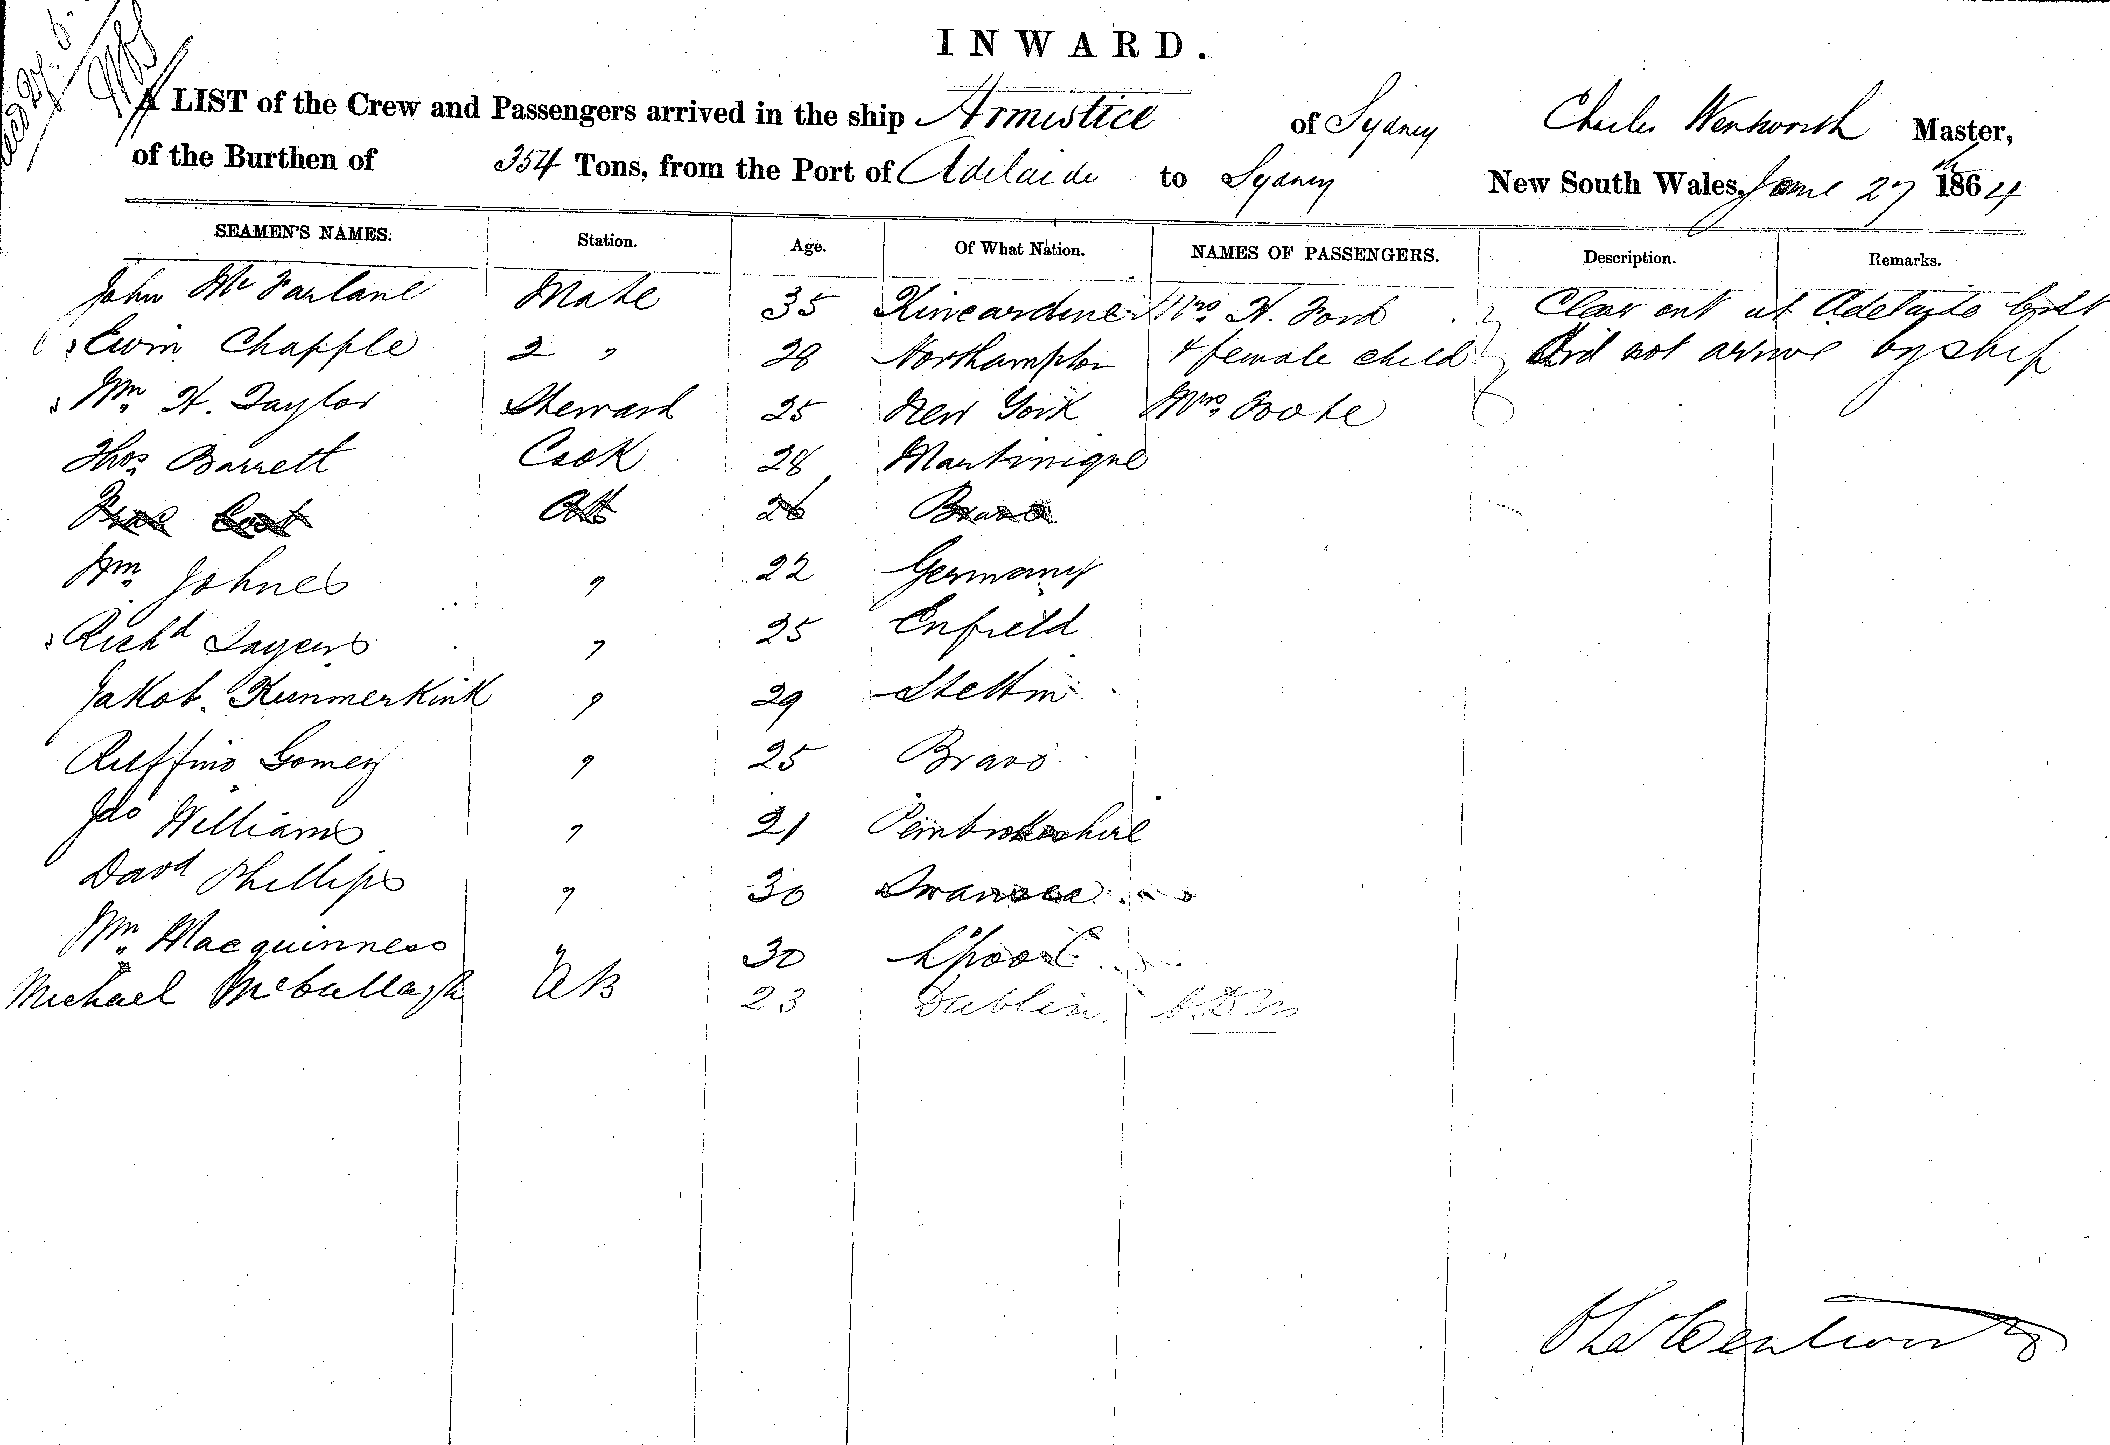 INWARD.
A LIST of the Crew and Passengers arrived in the ship Armistice of Sydney Charles Wentworth Master,
of the Burthen of 354 Tons, from the Port of Adelaide to Sydney New South Wales, June 27th 1864
SEAMEN'S NAMES. Station. Age. Of What Nation. NAMES OF PASSENGERS. Description. Remarks.
John McFarlane Mate 35 Kincardine Mrs. H. Ford Clear out at Adelaide but
Ewin Chapple 2 " 28 Northampton & female child Did not arrive by ship
Wm. H. Taylor Steward 25 New York Mrs. Boote
Thos. Barrett Cook 28 Martinique
AB 26 Bravo
Wm. Johnes " 22 Germany
Richd Sayers " 25 Enfield
Jakob. Kummerkink " 29 Stettin
Ruffino Gomez " 25 Bravo
Jno Williams " 21 Pembrokeshire
Davd Phillips " 30 Swansea
Wm. Macguinness " 30 L'pool
Michael McCullagh AB 23 Dublin
Chs Wentworth